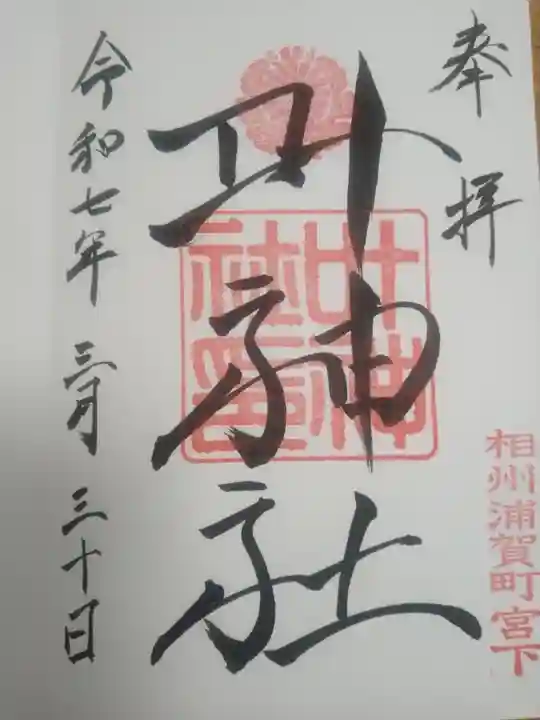 奉拝
相州浦賀町宮下
叶神社
叶神社印
令和七年三月三十日